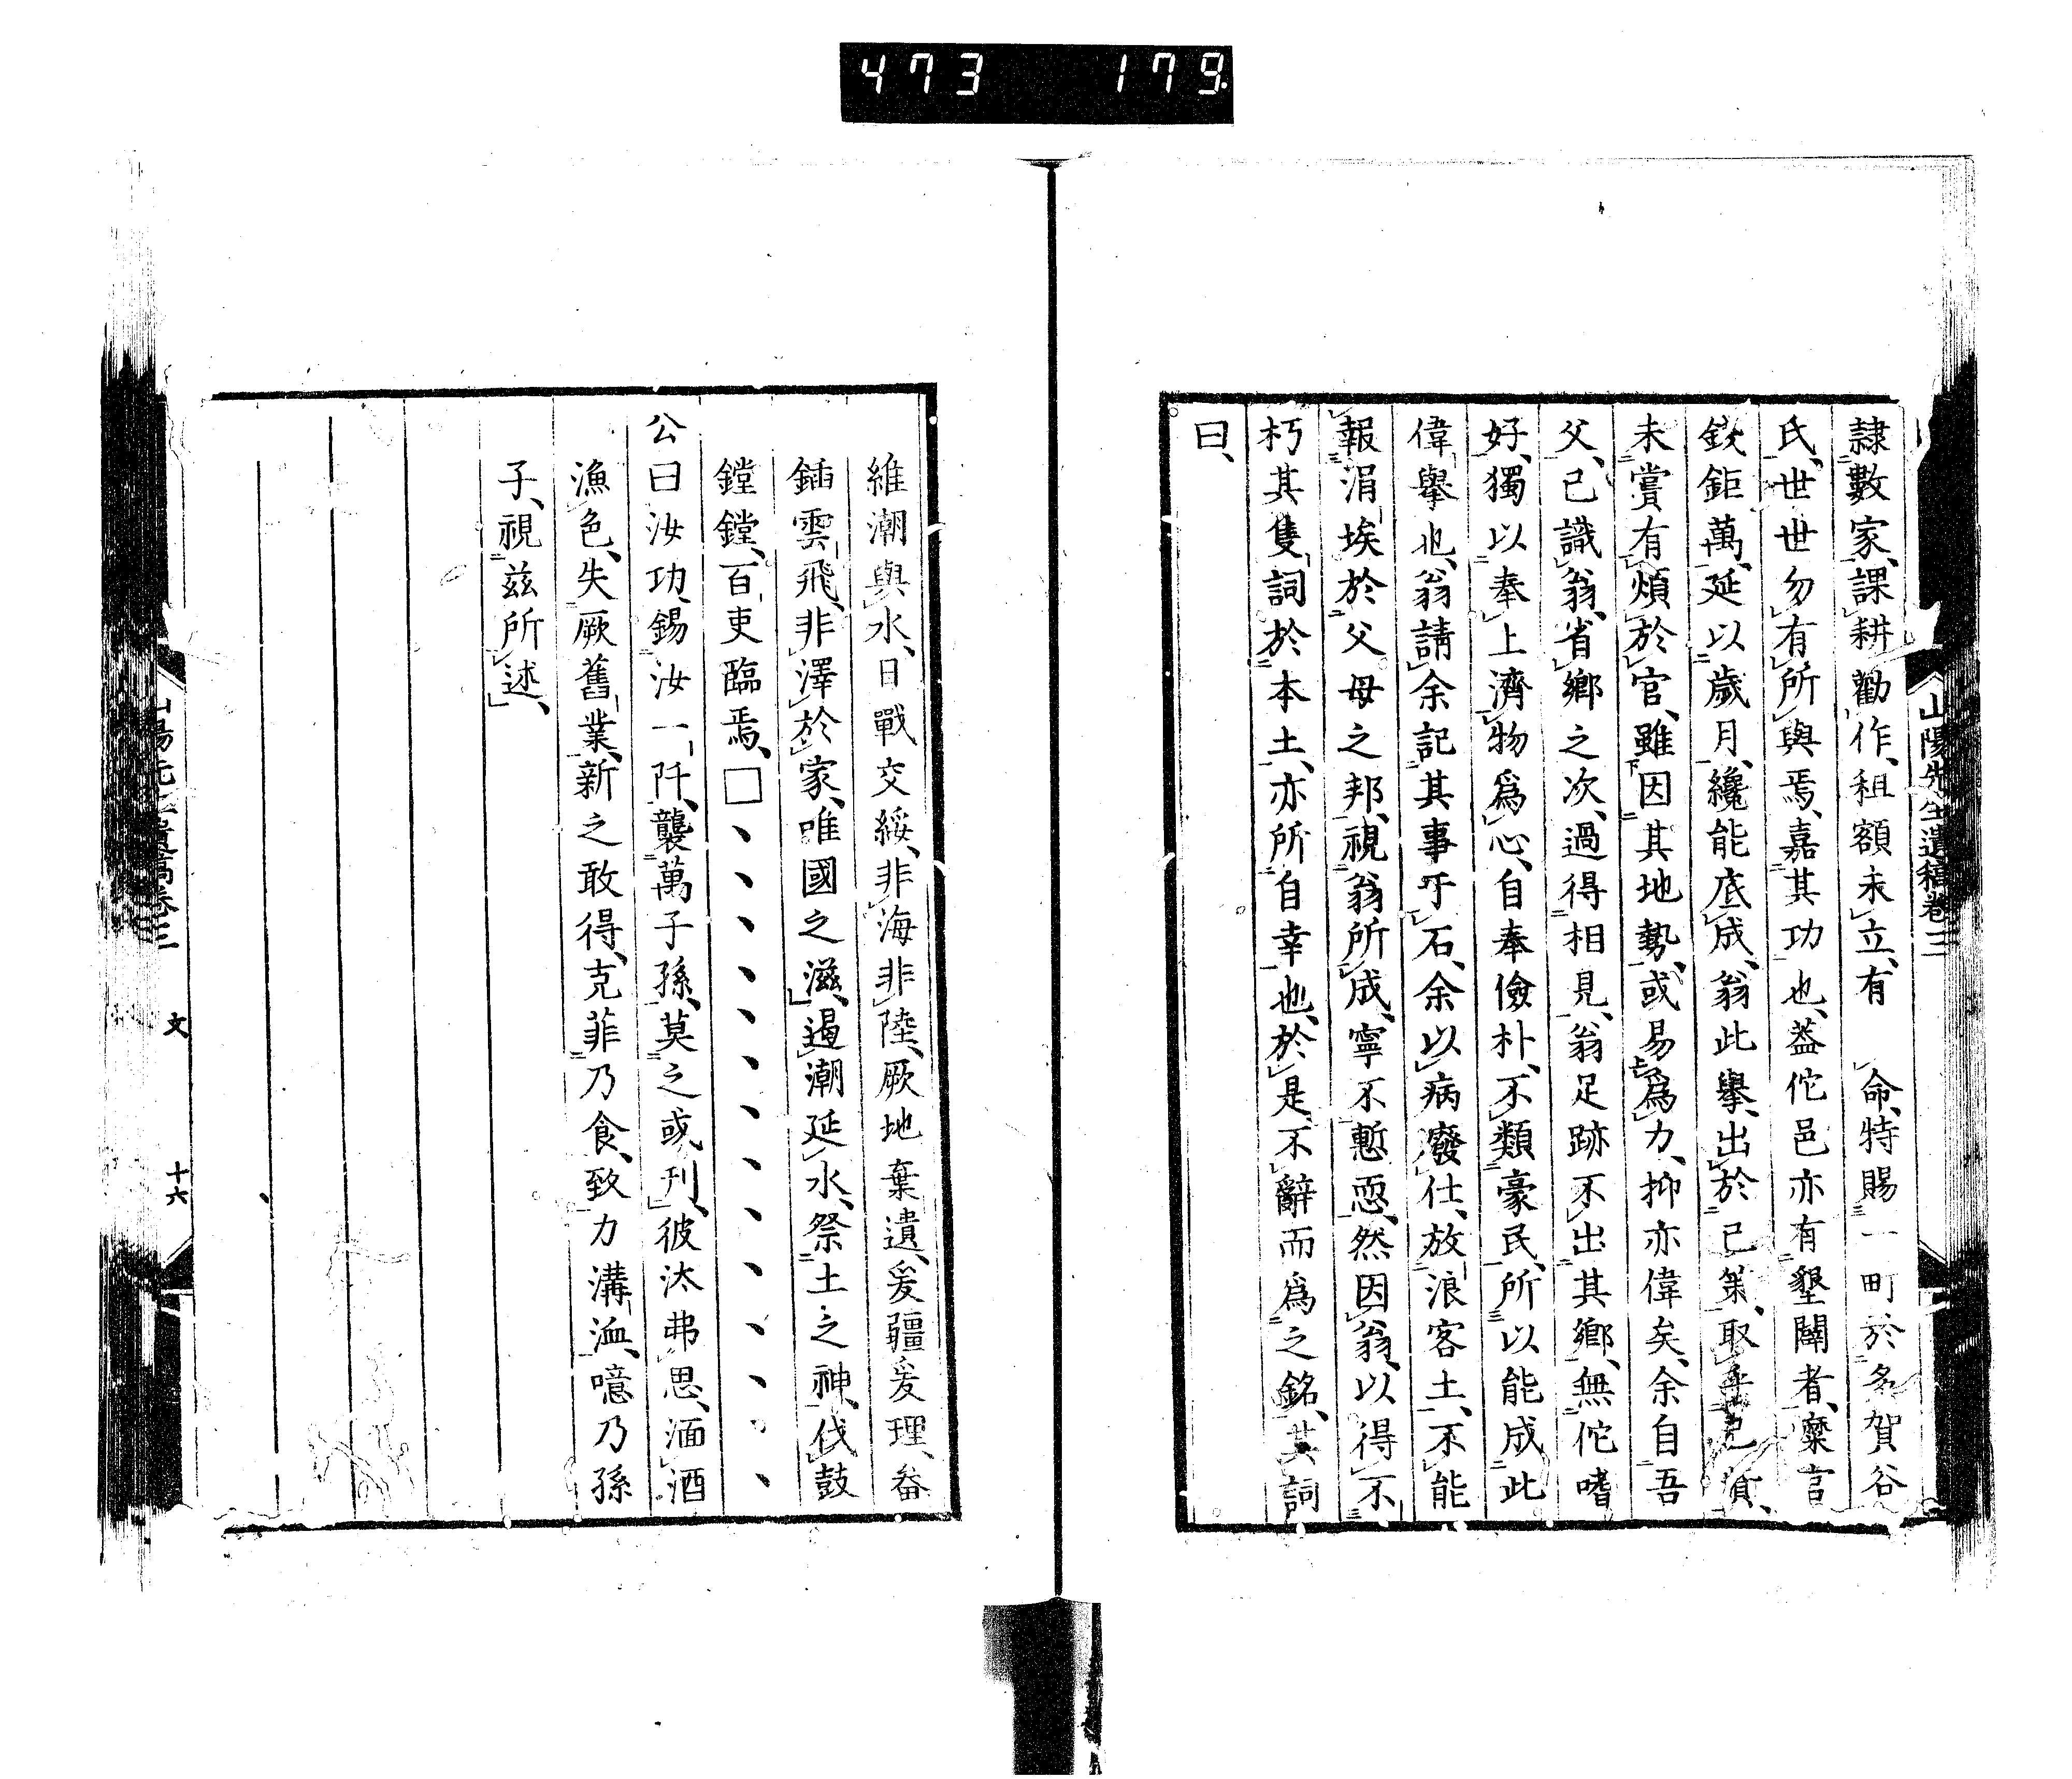 473 179
隷數家、課耕勸作、租額未立、有 命、特賜一町於多賀谷
氏、世世勿有所與焉、嘉其功也、葢佗邑亦有墾闢者、糜官
鏹鉅萬、延以歲月、纔能底成、翁此擧、出於己策、取辛己貲、
未嘗有煩於官、雖因其地勢、或易爲力、抑亦偉矣、余自吾
父、已識翁、省鄉之次、過得相見、翁足跡不出其鄉、無佗嗜
好、獨以奉上濟物爲心、自奉儉朴、不類豪民、所以能成此
偉擧也、翁請余記其事于石、余以病廢仕、放浪客土、不能
報涓埃於父母之邦、視翁所成、寧不慙恧、然因翁、以得不
朽其隻詞於本土、亦所自幸也、於是、不辭而爲之銘、其詞
曰、
山陽先生遺稿卷三
維潮與水、日戰交綏、非海非陸、厥地棄遺、爰疆爰理、畚
鍤雲飛、非澤於家、唯國之滋、遏潮延水、祭土之神、伐鼓
鏜鏜、百吏臨焉、□、、、、、、、、、、、、、、
公曰汝功、錫汝一阡、襲萬子孫、莫之或刋、彼汰弗思、湎酒
漁色、失厥舊業、新之敢得、克菲乃食、致力溝洫、噫乃孫
子、視玆所述、
山陽先生遺稿卷三 文 十六